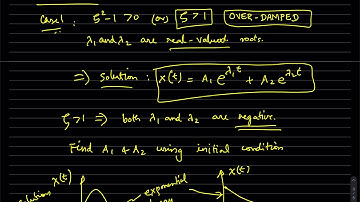 Case1: ζ²-1 >0 (or) ζ >1 OVER-DAMPED
λ₁ and λ₂ are real-valued roots.
⇒ Solution : x(t) = A₁ e^λ₁t + A₂ e^λ₂t
ζ>1 ⇒ both λ₁ and λ₂ are negative.
Find A₁ & A₂ using initial condition
x(t) exponential x(t)
solutions